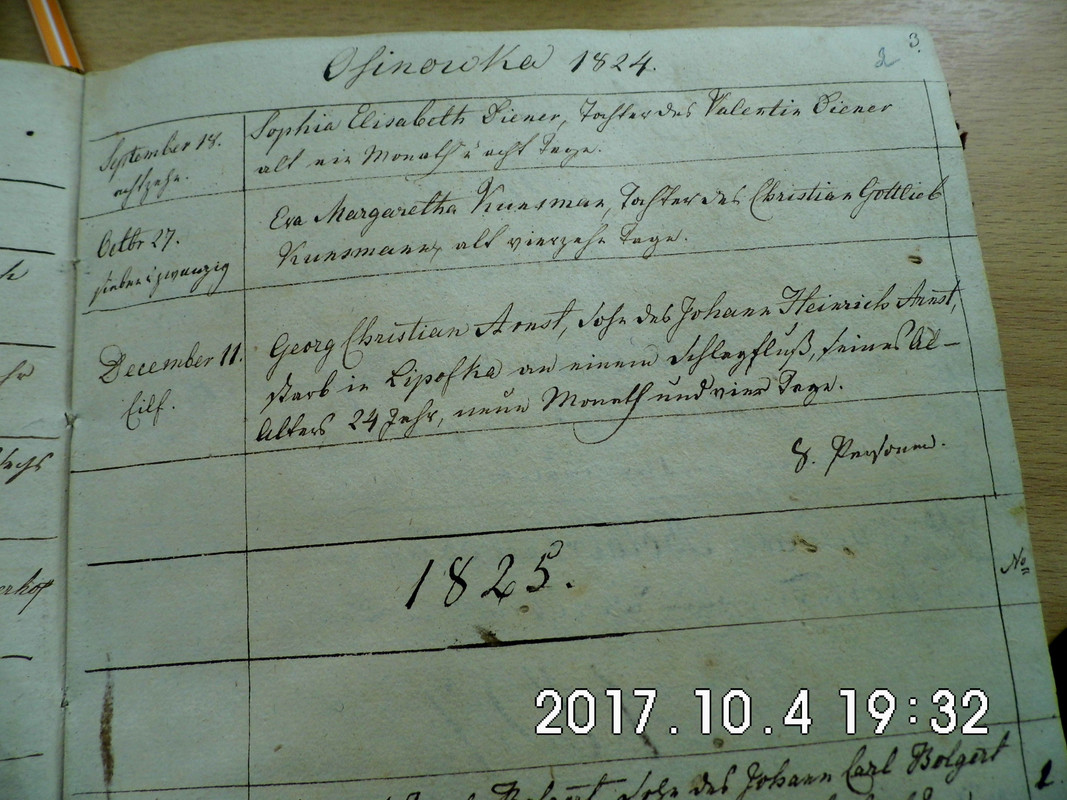 3.
2
Osinowka 1824.
September 18.
achtzehn.
Sophia Elisabeth Diener, Tochter des Valentin Diener
alt ein Monath u acht Tage.
Octbr 27.
sieben u zwanzig
Eva Margaretha Kunsman, Tochter des Christian Gottlieb
Kunsmann, alt vierzehn Tage.
December 11.
Eilf.
Georg Christian Arnst, Sohn des Johann Heinrich Arnst,
starb in Lipofka an einem Schlagfluß, seines Al-
Alters 24 Jahr, neun Monath und vier Tage.
8. Personen.
1825.
No
Sohn des Johann Carl Bolgert
1.
sechs
2017.10.4 19:32